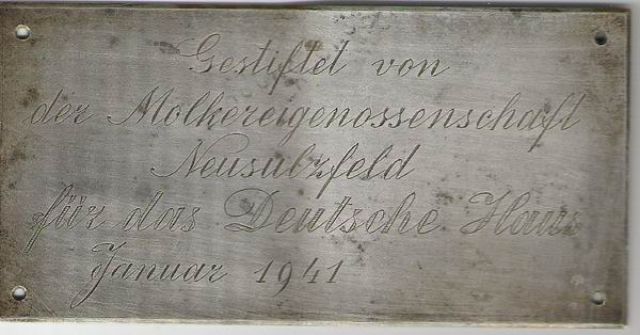 Gestiftet von
der Molkereigenossenschaft
Neusulzfeld
für das Deutsche Haus
Januar 1941